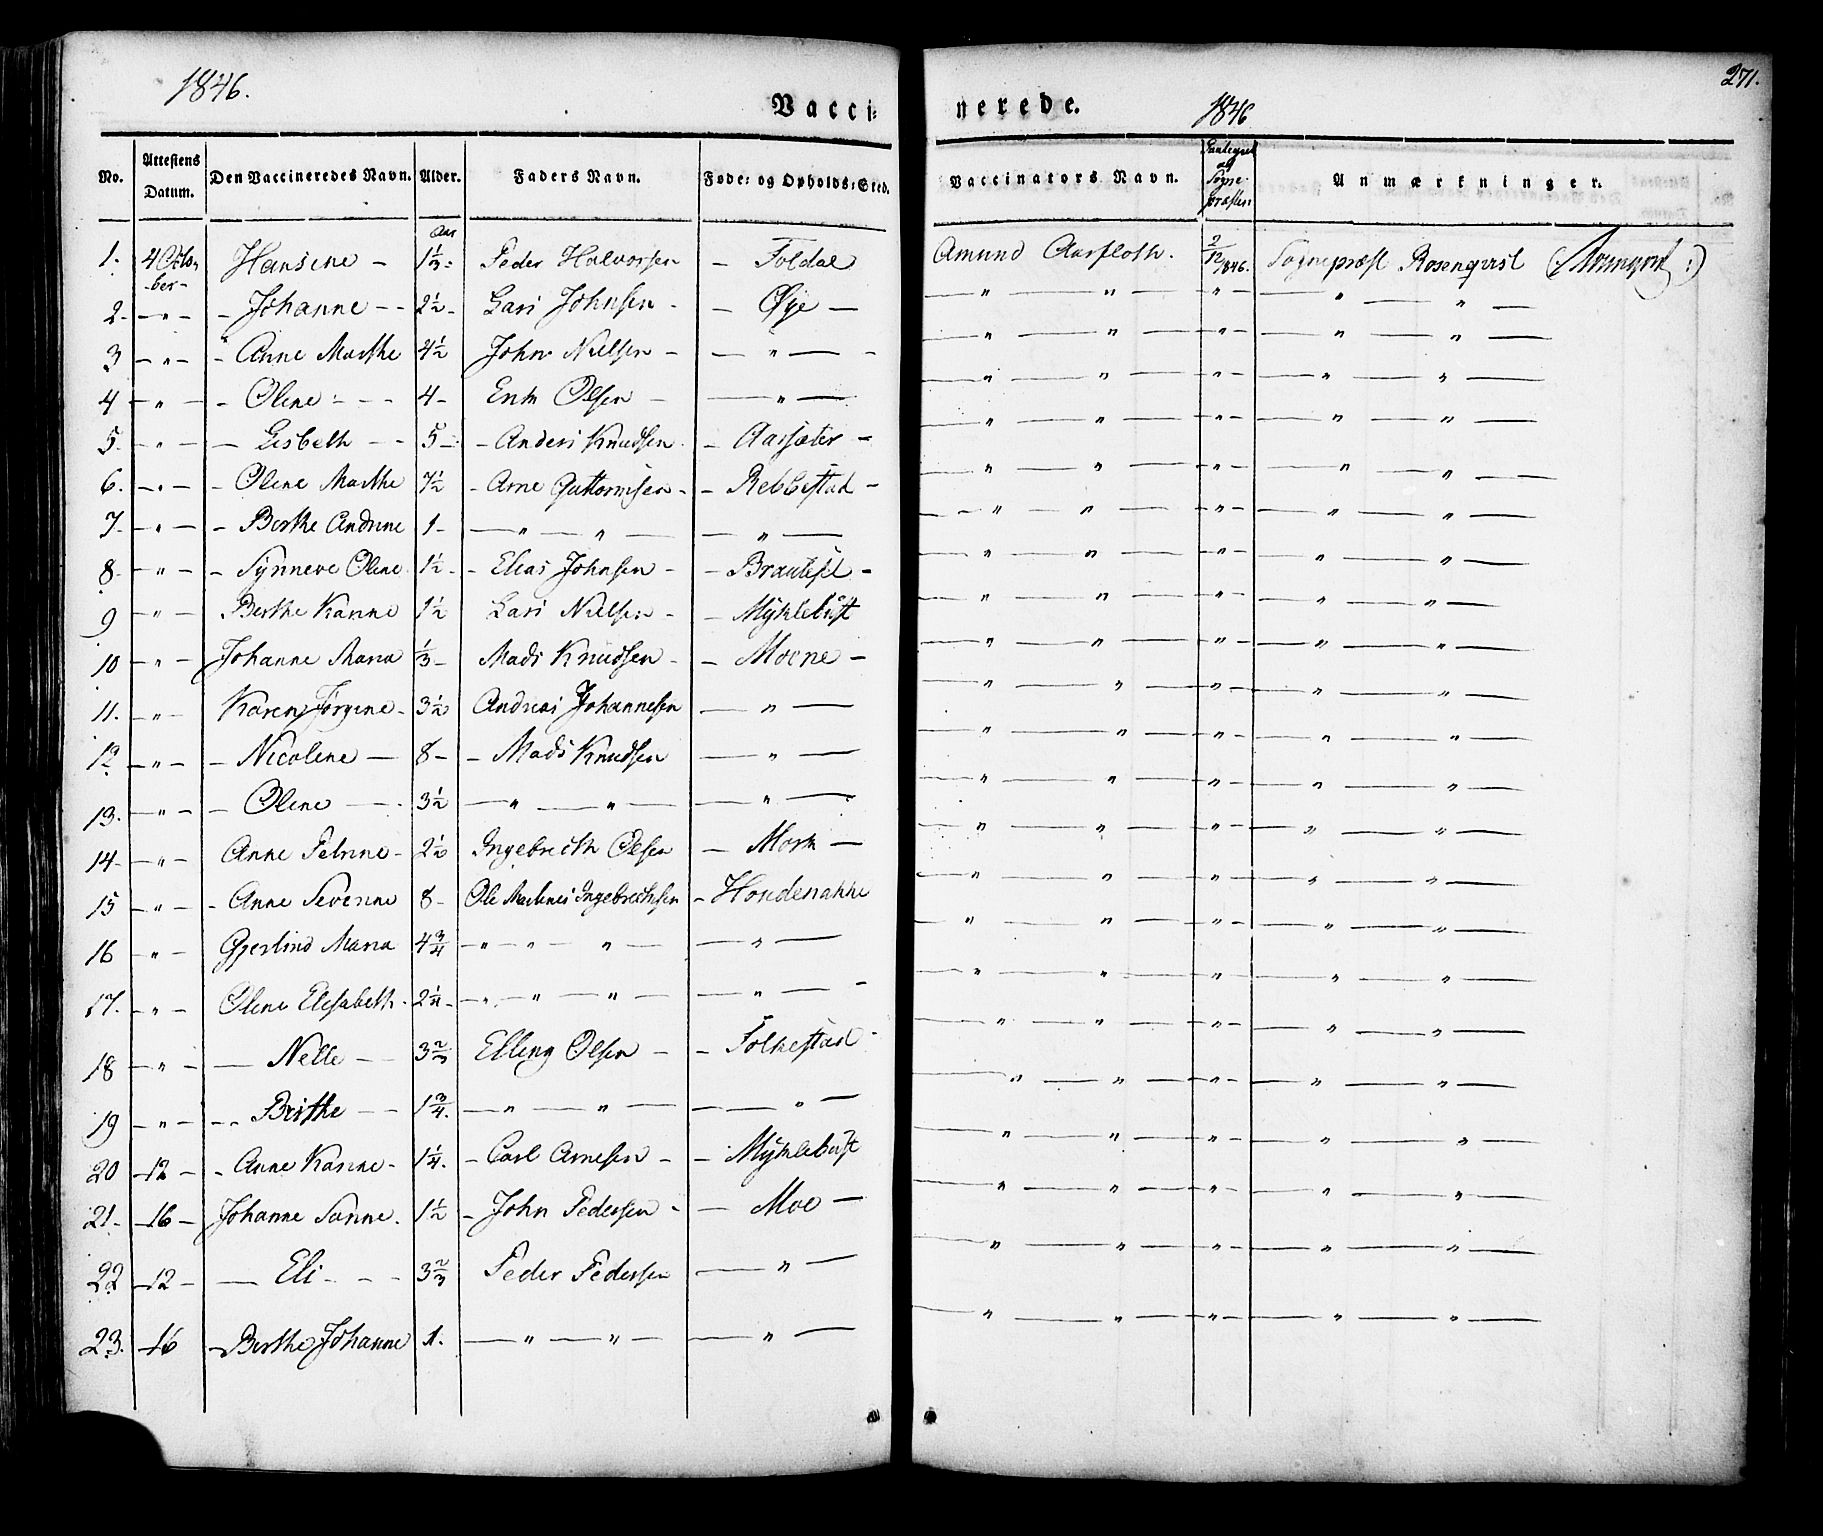 1846.
Vacci-
nerede.
1846
271.
No. Attestens Datum. Den Vaccineredes Navn. Alder. Faders Navn. Føde- og Opholds-Sted. Vaccinators Navn. Anmærkninger.
Aar
1. 4 Octo-ber- Hansine - 1 1/3 - Peder Halvorsen - Foldal Amund Aarfloth. 2/12 1846. Sognepræst Rosenqvist
2. - " - - Johanne - - 2 1/2 - Lars Johnsen - - Øye - — " — " — " — — " — " —
3 - " - - Anne Marthe 4 1/2 John Nielsen - — " — - — " — " — " — — " — " —
4 - " - - Oline - - - 4 - Erik Olsen - — " — — " — " — " — — " — " —
5. - " - — Lisbeth - - 5 - - Anders Knudsen - Aarsæter - — " — " — " — — " — " —
6. - " - - Oline Marthe 7 1/2 - Arne Guttormsen - - Rebbestad - — " — " — " — — " — " —
7. - " - - Berthe Andrine 1 - — " — " — — " — — " — " — " — — " — " —
8 - " - - Synneve Oline 1 1/2 - - Elias Johnsen - - Brautset - — " — " — " — — " — " —
9 - " - Berthe Karine 1 1/2 Lars Nielsen - - Myklebust — " — " — " — — " — " —
10 - " - Johanne Maria 1/3 - Mads Knudsen - - Moene - — " — " — " — — " — " —
11. - " - Karen Jørgine - 3 1/2 Andreas Johannesen — " — — " — " — " — — " — " —
12 - " - - Nicoline — 8 - - Mads Knudsen — " — — " — " — " — — " — " —
13. - " - - Oline — - 3 1/2 — " — " — — " — — " — " — " — — " — " —
14 - " - Anne Petrine - 2 1/2 Ingebrecth Olsen - Mork — — " — " — " — — " — " —
15 - " - - Anne Severine 8 - Ole Mathias Ingebrechtsen - Hovdenakke — " — " — " — — " — " —
16 - " - Gjertine Maria 4 3/4 - " - " — " — — " — — " — " — " — — " — " —
17. - " - Oline Elisabeth - 2 1/4 - - " - " — " — — " — - — " — " — " — — " — " —
18 - " - — Nelle - - 3 2/3 Elling Olsen - - Folkestad - — " — " — " — — " — " —
19 - " - - - Berthe - - 1 3/4. — " — " — — " — — " — " — " — — " — " —
20 - 12 - - Anne Karine - 1 1/4. - Carl Arnesen - - Myklebust — " — " — " — — " — " —
21 - - 16 - Johanne Sanne. 1 1/2 - John Pedersen - — Moe — — " — " — " — — " — " —
22 - 12 - — Eli - - - 3 2/3 Peder Pedersen — " — — " — " — " — — " — " —
23. - 16 - Berthe Johanne 1. — " — " — — " — — " — " — " — — " — " —